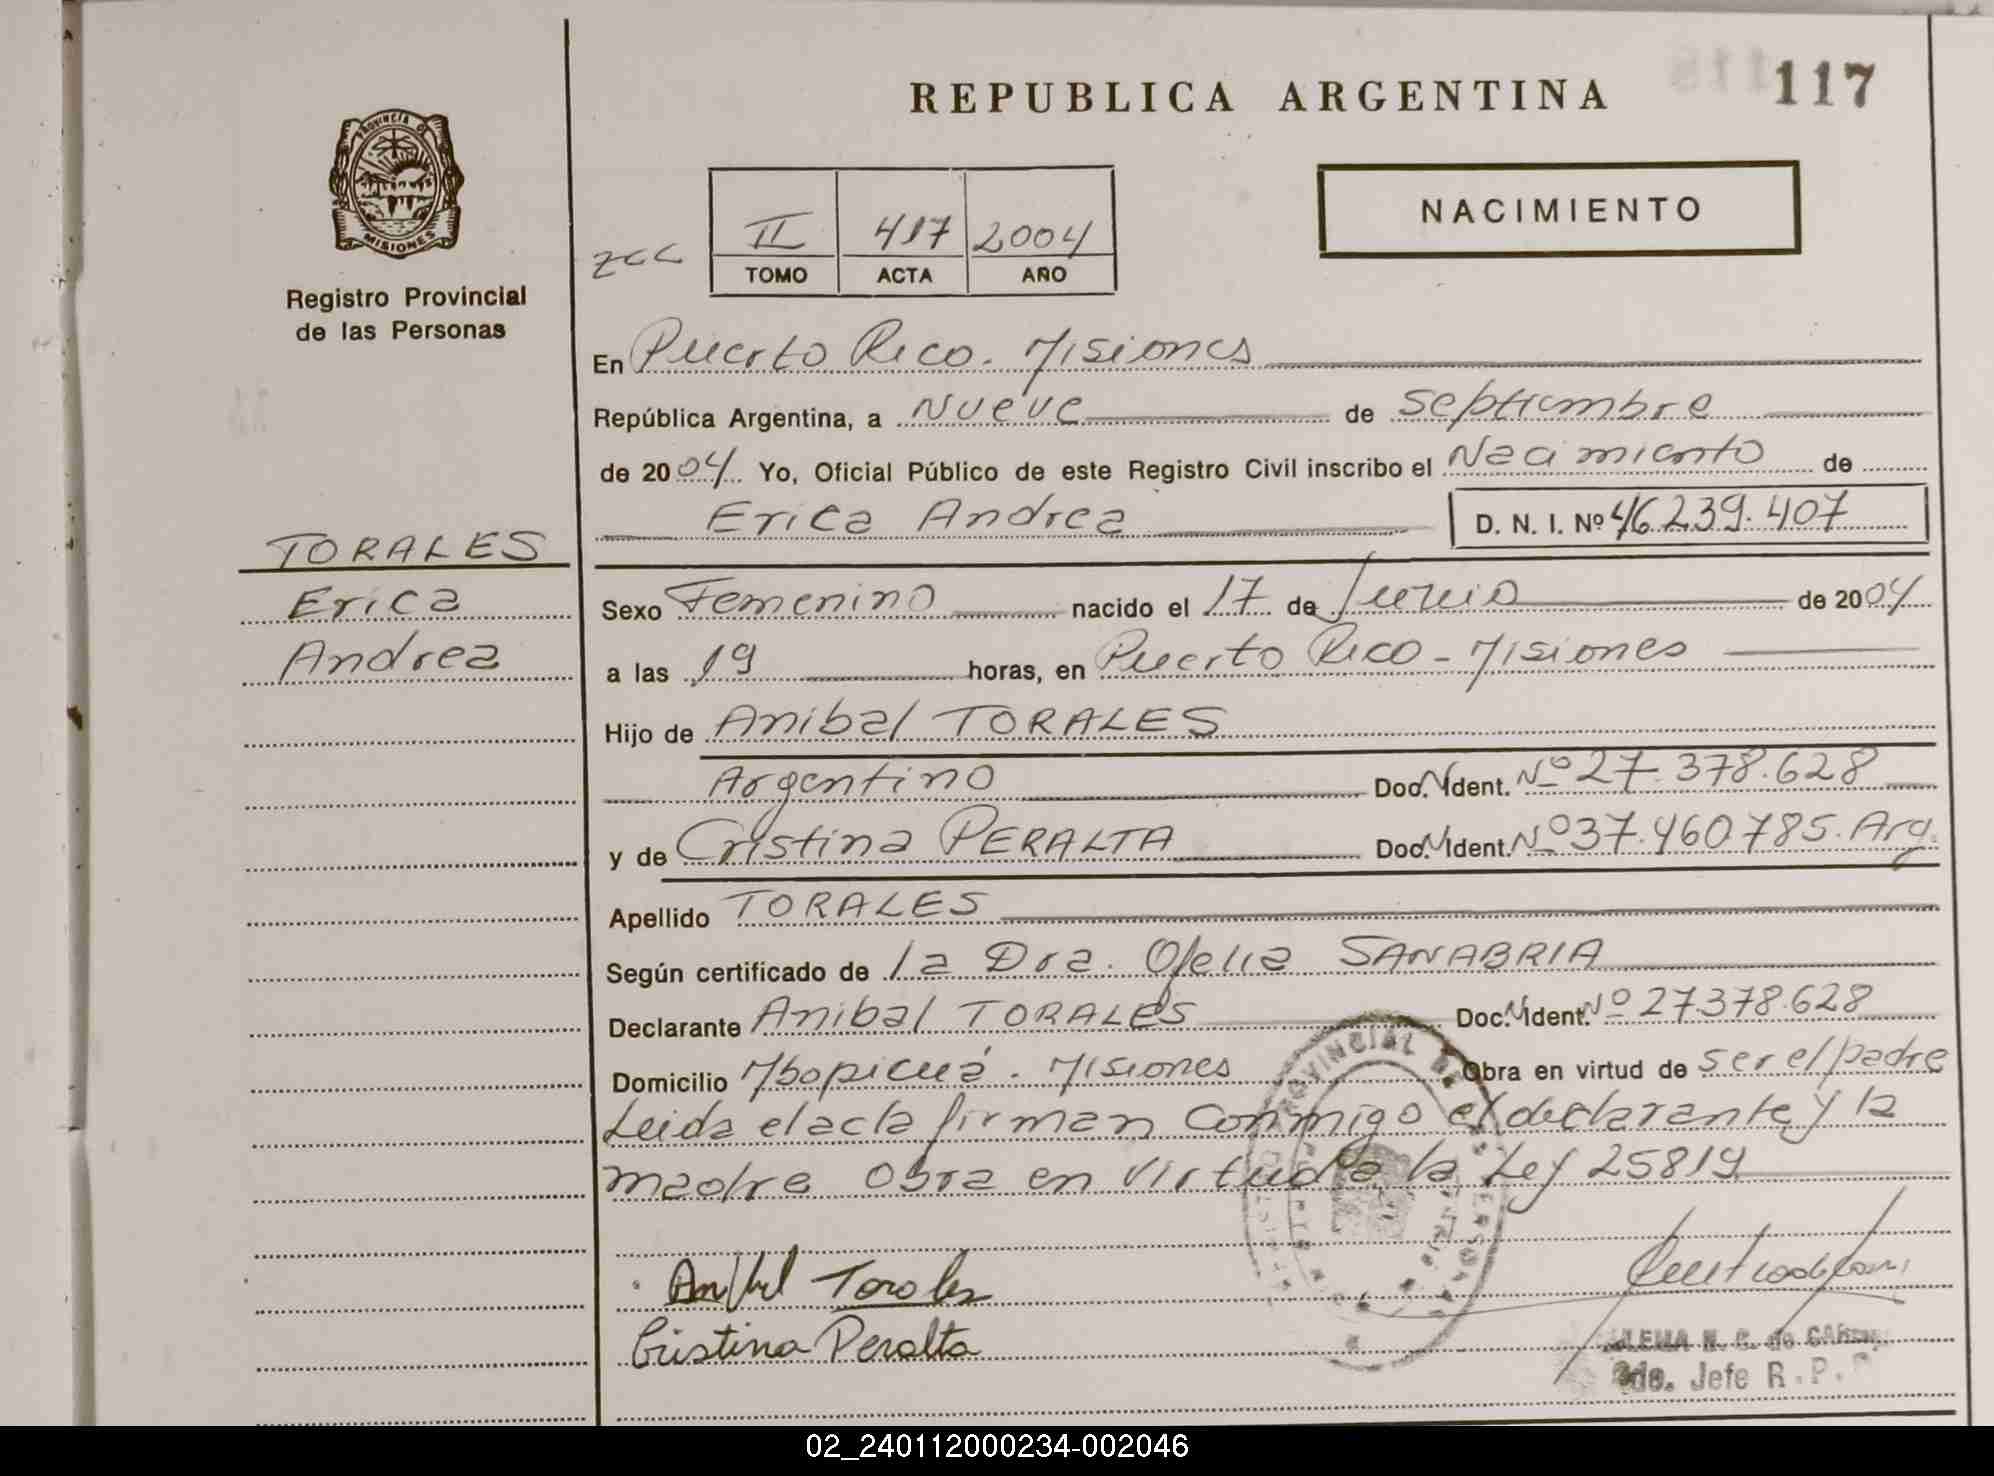 REPUBLICA ARGENTINA
117
PROVINCIA DE
MISIONES
Registro Provincial
de las Personas
NACIMIENTO
II 417 2004
TOMO ACTA AÑO
En Puerto Rico. Misiones
República Argentina, a Nueve de Septiembre
de 2004 Yo, Oficial Público de este Registro Civil inscribo el Nacimiento de
Erica Andrea D. N. I. Nº 46.239.407
TORALES
Erica
Andrea
Sexo Femenino nacido el 17 de Junio de 2004
a las 19 horas, en Puerto Rico - Misiones
Hijo de Anibal TORALES
Argentino Doc. N Ident. Nº 27.378.628
y de Cristina PERALTA Doc. N Ident. Nº 37.460.785. Arg.
Apellido TORALES
Según certificado de la Dra. Ofelia SANABRIA
Declarante Anibal TORALES Doc. N Ident. Nº 27.378.628
Domicilio Mbopicuá. Misiones Obra en virtud de ser el padre
Leida el acta firman conmigo el declarante y la
madre Obra en virtud a la Ley 25819
Anibal Torales
Cristina Peralta
N. C. de
2do. Jefe R. P.
02_240112000234-002046